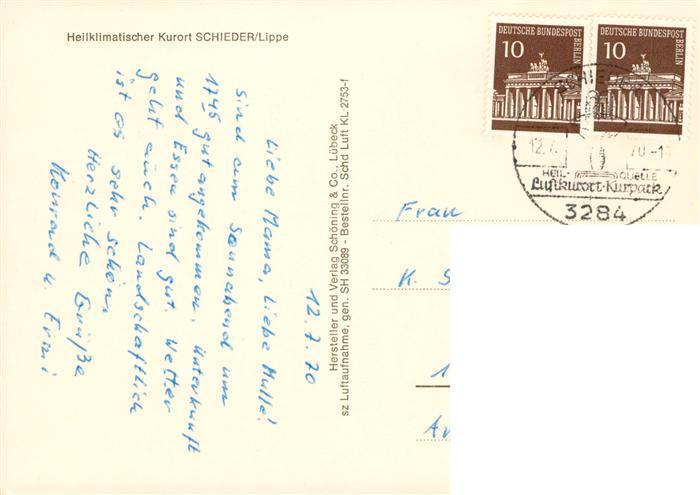 Heilklimatischer Kurort SCHIEDER/Lippe
12.7.70
Liebe Mama, Liebe Mulle!
Sind am Sonnabend um
1745 gut angekommen. Unterkunft
und Essen sind gut. Wetter
geht auch. Landschaftlich
ist es sehr schön.
Herzliche Grüße
Konrad u. Erni
Hersteller und Verlag Schöning & Co., Lübeck
sz Luftaufnahme, gen. SH 33089 - Bestellnr. Schd Luft KL 2753-f
DEUTSCHE BUNDESPOST
BERLIN
10
DEUTSCHE BUNDESPOST
BERLIN
10
SCHIEDER
12.7.
70-1
HEIL-QUELLE
Luftkurort-Kurpark
3284
Frau
K. S
1